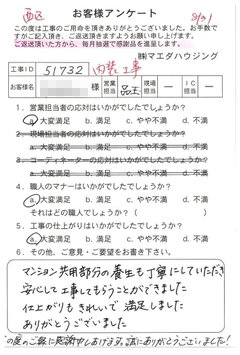 西区
8/31
お客様アンケート
この度は工事のご用命を頂きありがとうございました。お手数で
すがご記入頂き、ご返送頂きますようお願い申し上げます。
ご返送頂いた方から、毎月抽選で感謝品を進呈します。
㈱マエダハウジング
工事ID 51732 内装工事
お客様名 様 営業担当 現場担当 ー IC担当 ー
1. 営業担当者の応対はいかがでしたでしょうか?
a. 大変満足 b. 満足 c. やや不満 d. 不満
2. 現場担当者の応対はいかがでしたでしょうか?
a. 大変満足 b. 満足 c. やや不満 d. 不満
3. コーディネーターの応対はいかがでしたでしょうか?
a. 大変満足 b. 満足 c. やや不満 d. 不満
4. 職人のマナーはいかがでしたでしょうか?
a. 大変満足 b. 満足 c. やや不満 d. 不満
それはどの職人でしょうか?( )
5. 工事の仕上がりはいかがでしたでしょうか?
a. 大変満足 b. 満足 c. やや不満 d. 不満
6. その他、ご意見・ご要望をお書き下さい。
マンション共用部分の養生も丁寧にしていただき
安心して工事してもらうことができました
仕上がりもきれいで満足しました
ありがとうございました
の度のご縁に感謝申しあげます。誠にありがとうございました!